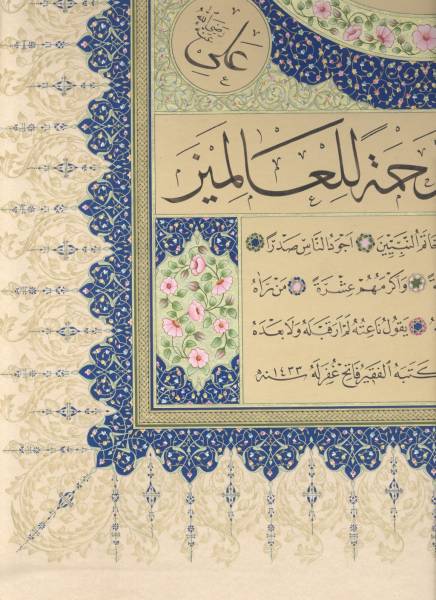 علي رضي الله عنه
رحمةً للعالمين
خاتم النبيين اجود الناس صدرًا
واكرمهم عشرةً من رآه
يقول ناعته لم ار قبله ولا بعده
كتبه الفقير فاتح غفر له سنه ١٤٣٣